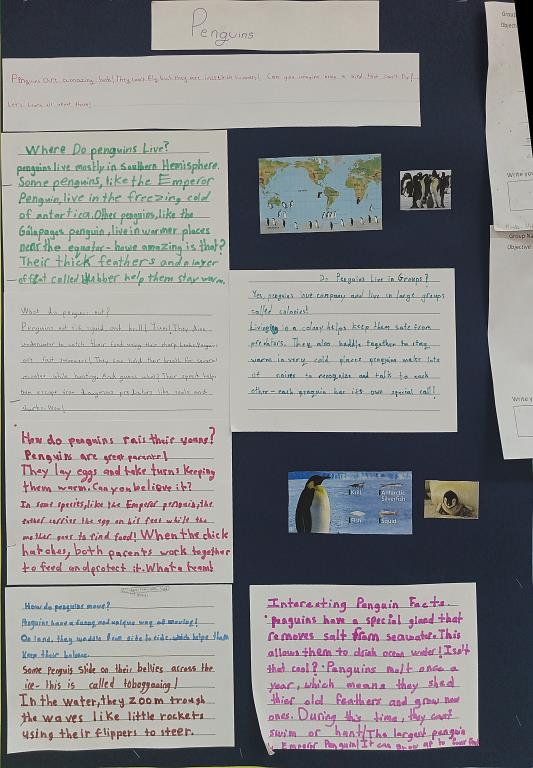 Penguins
Penguins are amazing birds! They can't fly but they are incredible swimmers! Can you imagine being a bird that can't fly?
Let's learn all about them!
Where Do penguins Live?
penguins live mostly in Southern Hemisphere.
Some penguins, like the Emperor
Penguin, live in the freezing cold
of antartica. Other penguins, like the
Galapagos penguin, live in warmer places
near the equator - howe amazing is that?
Their thick feathers and a layer
of fat called blubber help them stay warm.
What do penguins eat?
Penguins eat fish, squid, and krill! Yum! They dive
underwater to catch their food using their sharp beaks. Penguins
are fast swimmers! They can hold their breath for several
minutes while hunting. And guess what? Their speed helps
them escape from dangerous predators like seals and
sharks. Wow!
How do penguins rais their young?
Penguins are great parents!
They lay eggs and take turns keeping
them warm. Can you believe it?
In some species, like the Emperor penguin, the
father carries the egg on his feet while the
mother goes to find food! When the chick
hatches, both parents work together
to feed and protect it. What a team!
How do penguins move?
Penguins have a funny and unique way of moving!
On land, they waddle from side to side, which helps them
keep their balance.
Some penguis slide on their bellies across the
ice - this is called tobogganing!
In the water, they zoom trough
the waves like little rockets
using their flippers to steer.
Do Penguins Live in Groups?
Yes, penguins love company and live in large groups
called colonies!
Living in a colony helps keep them safe from
predators. They also huddle together to stay
warm in very cold places penguins make lots
of noises to recognize and talk to each
other - each penguin has its own special call!
Krill
Antarctic
Silverfish
Fish
Squid
Interesting Penguin Facts.
penguins have a special gland that
removes salt from seawater. This
allows them to drink ocean water! Isn't
that cool? Penguins molt once a
year, which means they shed
thier old feathers and grow new
ones. During this time, they can't
swim or hunt! The largest penguin
is Emperor Penguin! It can grow up to four feet
Group
Objective
Write you
Group Na
Objective
Write yo